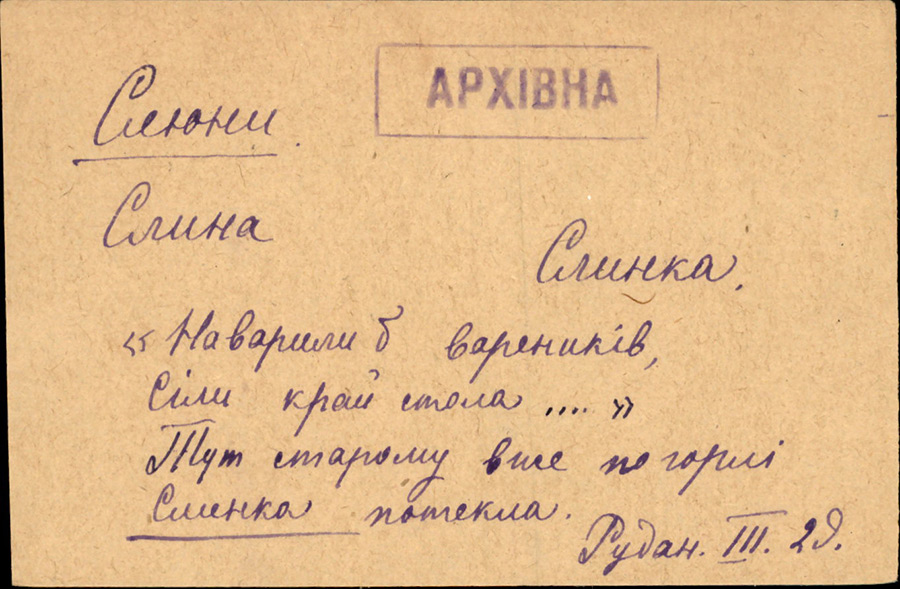 АРХІВНА
Слюни
Слина
Слинка.
«Наварили б вареників,
Сіли край стола .... »
Тут старому вже по горлі
Слинка потекла.
Рудан. III. 29.